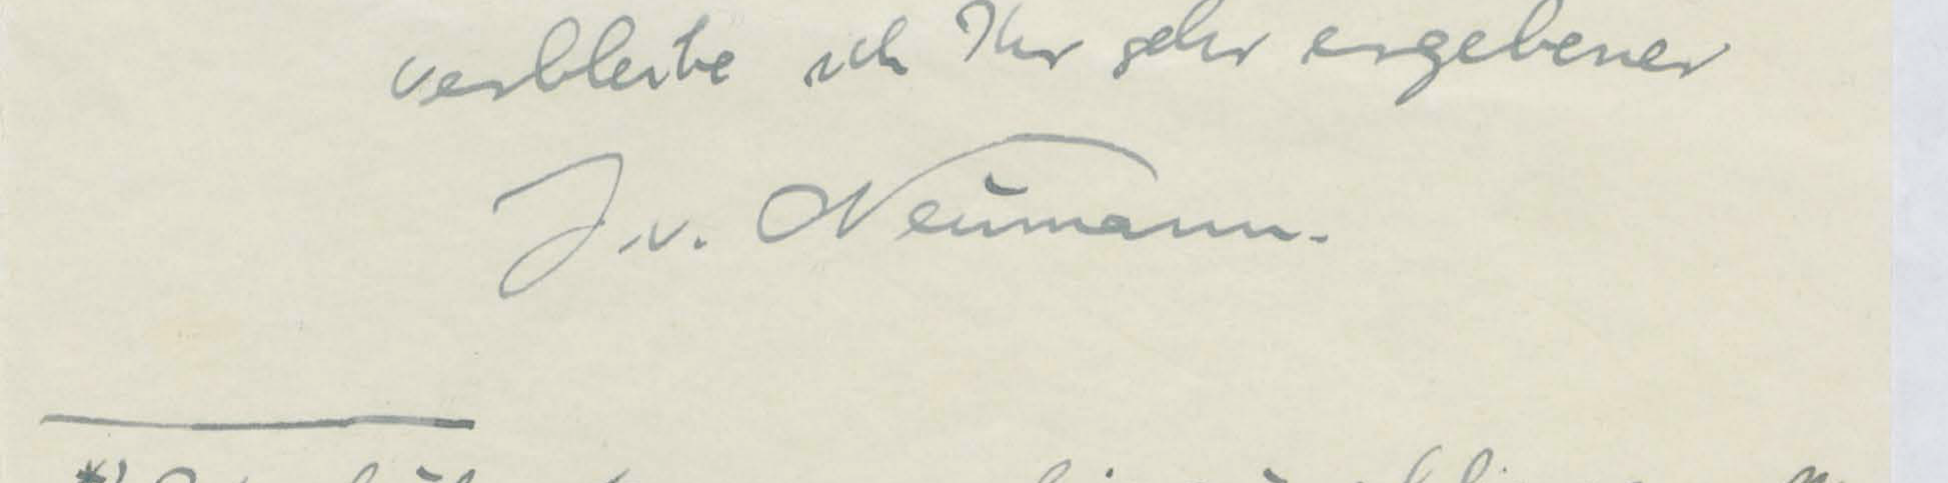 verbleibe ich Ihr sehr ergebener
J. v. Neumann.
*)